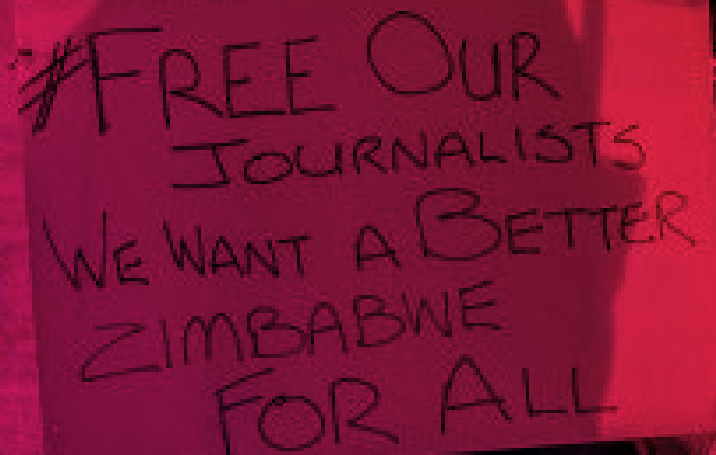 #FREE OUR
JOURNALISTS
WE WANT A BETTER
ZIMBABWE
FOR ALL